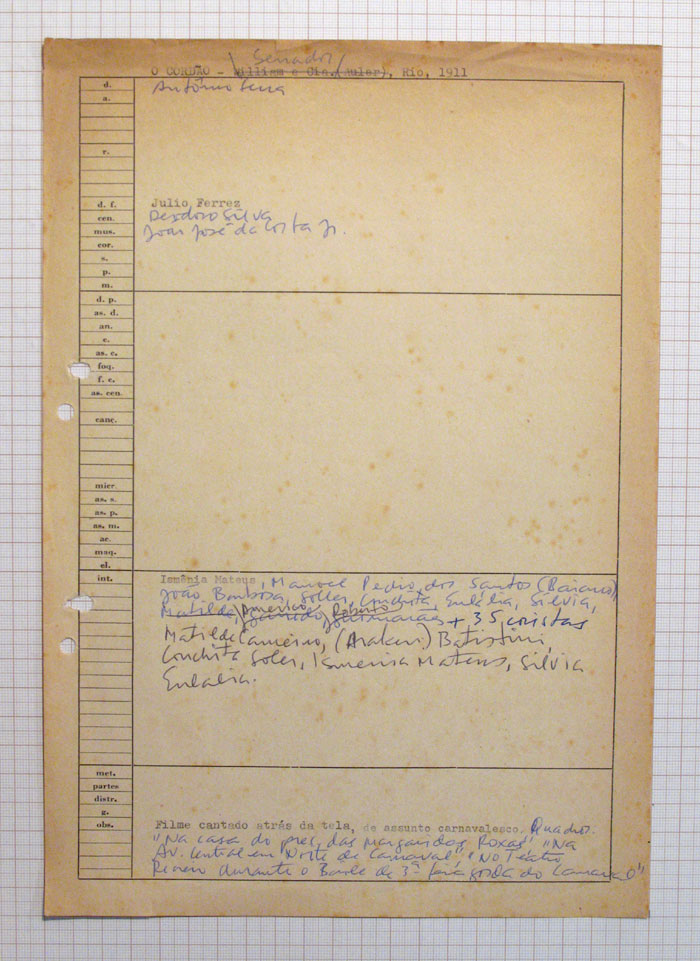 Senador
O CORDÃO - William e Cia.(Auler), Rio, 1911
d.
a. Antônio Serra
r.
d. f. Julio Ferrez
cen. Deodoro Silva
mus. João José da Costa Jr.
cor.
s.
p.
m.
d. p.
as. d.
an.
e.
as. e.
foq.
f. c.
as. cen.
canç.
micr.
as. s.
as. p.
as. m.
ac.
maq.
el.
int. Ismênia Mateus, Manoel Pedro dos Santos (Baiano),
João Barbosa, Soller, Conchita, Eulália, Silvia,
Matilde, Americo Roberto Guimarães + 35 coristas
Matilde Carneiro, (Arakem) Batistini,
Conchita Soler, Ismenia Mateus, Silvia
Eulalia.
met.
partes
distr.
g.
obs. Filme cantado atrás da tela, de assunto carnavalesco. Quadros:
"Na casa do pres. das Margaridas Roxas", "Na
Av. Central em Noite de Carnaval", "No Teatro
durante o Baile de 3ª feira gorda do Carnaval"